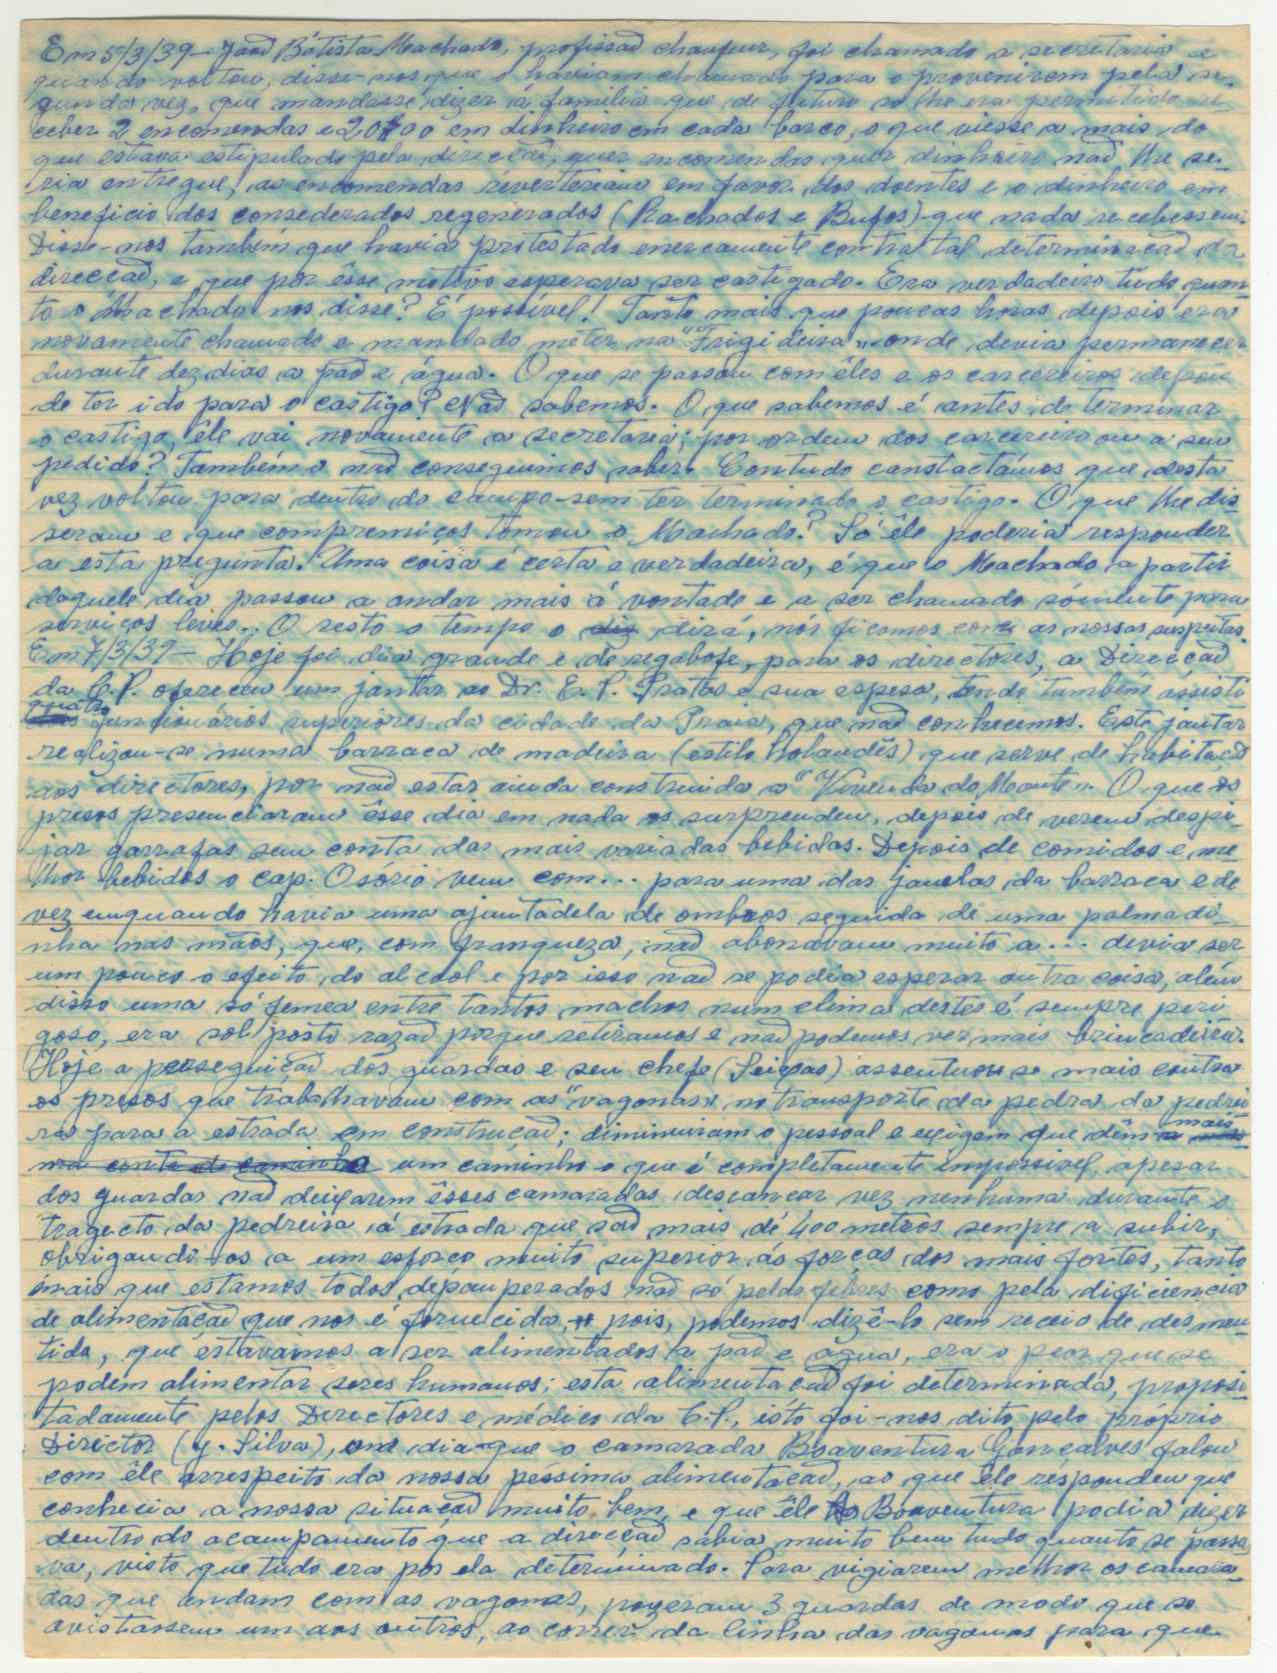 Em 5/3/39 - João Bátista Machado, profissão chaufeur, foi chamado a secretaria e
quando voltou, disse-nos que o haviam chamado para o provenirem pela se-
gunda vez, que mandasse dizer á familia que de futuro só lhe era permitido re-
ceber 2 encomendas e 20$00 em dinheiro em cada barco, o que viesse a mais do
que estava estipulado pela direcção, quer encomendas quer dinheiro não lhe se-
ria entregue, as encomendas reverteriam em favor dos doentes e o dinheiro em
beneficio dos consederados regenerados (Rachados e Bufos) que nada recebessem.
Disse-nos também que havia protestado enercamente contra tal determinacão da
direccão, e que por êsse motivo esperava ser castigado. Era verdadeiro tudo quan-
to o Machado nos disse? É possível! Tanto mais que poucas horas depois era
novamente chamado e mandado meter na "Frigideira" onde devia permanecer
durante dez dias a pão e água. O que se passou com êles e os carcereiros depois
de ter ido para o castigo? Não sabemos. O que sabemos é antes de terminar
o castigo, êle vai novamente a secretaria; por ordem dos carcereiro ou a seu
pedido? Também o não conseguimos saber. Contudo constactámos que desta
vez voltou para dentro do campo sem ter terminado o castigo. O que lhe dis
seram e que compremiços tomou o Machado? Só êle poderia responder
a esta pregunta. Uma coisa é certa e verdadeira, é que o Machado a partir
daquele dia passou a andar mais á vontade e a ser chamado sómente para
serviços leves... O resto o tempo o diz dirá, nós ficamos com as nossas suspeitas.
Em 7/3/39 - Hoje foi dia grande e de regabofe, para os directores, a Direccão
da C.P. ofereceu um jantar ao Dr. E. P. Pratas e sua espesa, tendo também assisti
quatro funcionários superiores da cidade da Praia, que não conhecemos. Este jantar
realizou-se numa barraca de madeira (estilo holandês) que serve de habitacão
aos directores, por não estar ainda construida a "Vivenda do Monte". O que os
presos presenciaram êsse dia em nada os surprendeu, depois de verem despi-
jar garrafas sem conta das mais variadas bebidas. Depois de comidos e me
lhor bebidos o cap. Osório vem com... para uma das janelas da barraca e de
vez em quando havia uma ajuntadela de ombros seguida de uma palmadi-
nha nas mãos, que, com franqueza, não abonavam muito a... devia ser
um pouco o efeito do alcool e por isso não se podia esperar outra coisa, além
disso uma só femea entre tantos machos num clima destes é sempre peri
goso, era sol posto razão porque retiramos e não podemos ver mais brincadeiras.
Hoje a perseguicão dos guardas e seu chefe (Seixas) assentuou se mais contra
os presos que trabalhavam com as "vagonas" no transporte da pedra da pedrei
ra para a estrada em construcão; diminuiram o pessoal e exigem que dêm mais
um caminho o que é completamente impossivel, apesar
dos guardas não deixarem êsses camaradas descancar vez nenhuma durante o
tragecto da pedreira á estrada que são mais de 400 metros sempre a subir,
obrigando-os a um esforço muito superior ás forças dos mais fortes, tanto
mais que estamos todos depauperados não só pelas febres como pela dificiencia
de alimentacão que nos é fornecida, pois, podemos dizê-lo sem receio de desmen
tido, que estavámos a ser alimentados a pão e água, era o pior que se
podem alimentar seres humanos; esta alimentacão foi determinada, proposi-
tadamente pelos Directores e médico da C.P., isto foi-nos dito pelo próprio
Director (J. Silva), um dia que o camarada Boaventura Gonçalves falou
com êle arrespeito da nossa pessima alimentacão, ao que êle respondeu que
conhecia a nossa situacão muito bem, e que êle Boaventura podia dizer
dentro do acampamento que a direcção sabia muito bem tudo quanto se passa
va, visto que tudo era por ela determinado. Para vigiarem melhor os camara-
das que andam com as vagonas, pozeram 3 guardas de modo que se
avistassem um aos outros, ao correr da linha das vagonas para que